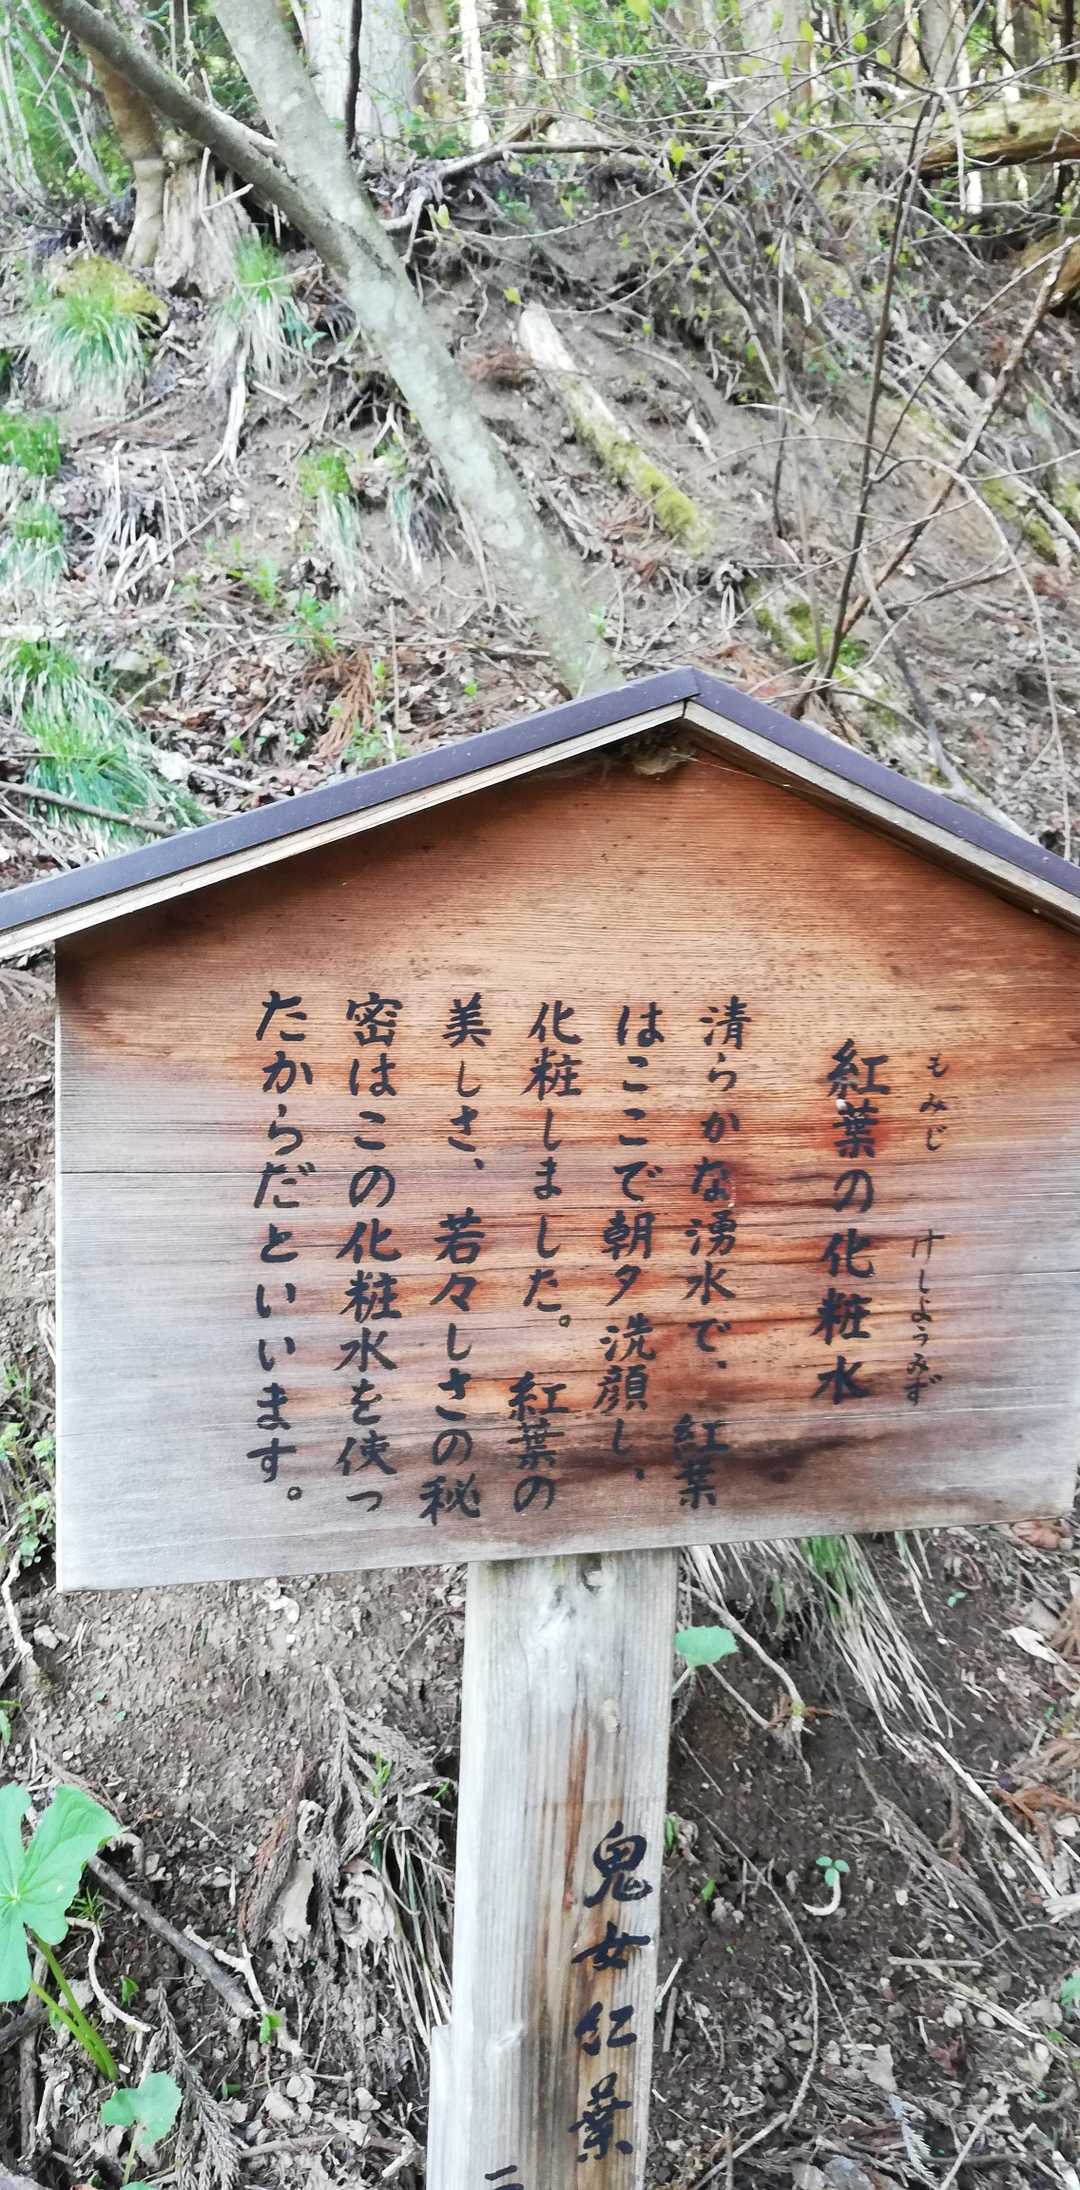 もみじ　けしようみず
紅葉の化粧水
清らかな湧水で、紅葉
はここで朝夕洗顔し、
化粧しました。紅葉の
美しさ、若々しさの秘
密はこの化粧水を使っ
たからだといいます。
鬼女紅葉